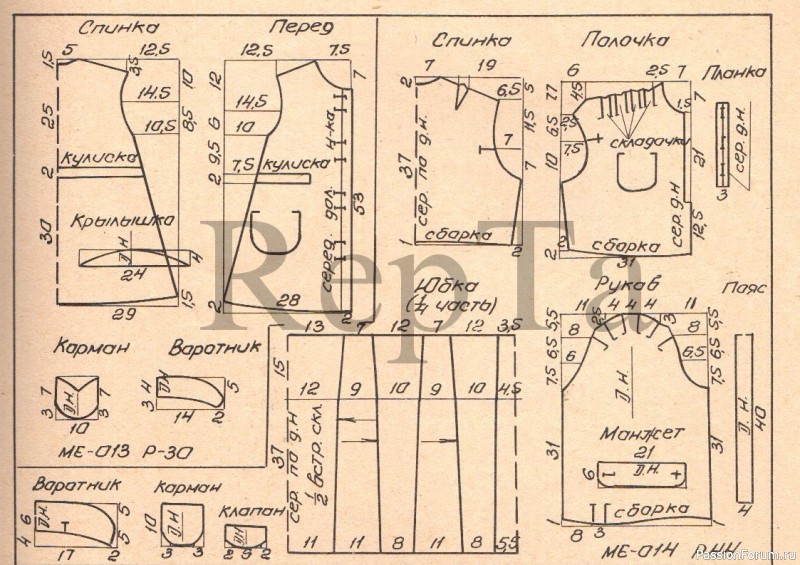 Спинка
Перед
5
12,5
1,5
3,5
10
14,5
10,5
8,5
25
кулиска
2
30
Крылышка
Д.Н
24
4
29
1,5
12,5
7,5
12
7
14,5
6
10
9,5
7,5
кулиска
2
ц-ка
серед. дол.
53
28
2
2
Карман
3
7
7
Д.Н.
3
10
3
Варатник
4
3
Д.Н
5
14
2
МЕ-013 Р-30
Варатник
6
4
Д.Н.
5
5
17
2
Карман
10
Д.Н
3
3
клапан
Д.Н
2
9
2
Спинка
7
19
2
5
6,5
11,5
7
37
сер. по д.н.
1
сборка
2
Полочка
6
2,5
7
4,5
7
1,5
6,5
2,5
7,5
складочки
10
21
сер. д.н
12,5
2
сборка
31
2
Планка
сер. д.н.
3
Юбка
(1/4 часть)
13
7
12
7
12
3,5
15
12
9
10
9
10
4,5
37
сер. по д.н
1/2 встр. скл.
11
11
8
11
8
5,5
Рукав
11
4
4
4
11
5,5
2,5
3
5,5
8
8
6,5
6,5
6
6,5
7,5
7,5
Д.Н.
31
31
Манжет
21
6
1
Д.Н.
сборка
1
8
3
Паяс
Д.Н.
40
4
МЕ-014
RepTa
PassionForum.ru